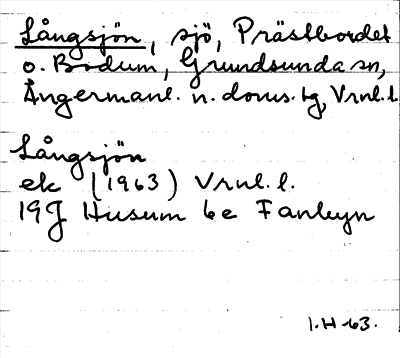 Långsjön, sjö, Prästbordet
o. Bodum, Grundsunda sn,
Ångermanl. n. doms. tg, Vrnl. l.
Långsjön
ek (1963) Vrnl. l.
19J Husum 6e Fanbyn
1.H-63.